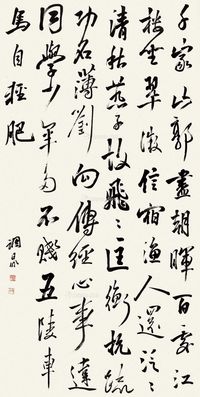 千家山郭盡朝暉百處江
樓坐翠微信宿漁人還泛〻
清秋燕子故飛〻匡衡抗疏
功名薄劉向傳經心事違
同學少年多不賤五陵車
馬自輕肥